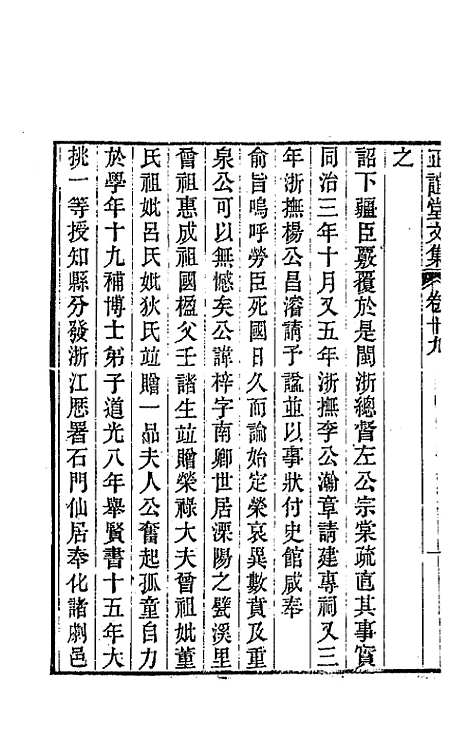 正誼堂文集 卷廿九
之
詔下疆臣覈覆於是閩浙總督左公宗棠疏直其事實
同治三年十月又五年浙撫李公瀚章請建專祠又三
年浙撫楊公昌濬請予諡並以事狀付史館咸奉
俞旨嗚呼勞臣死國日久而論始定榮哀異數賁及重
泉公可以無憾矣公諱梓字南卿世居溧陽之甓溪里
曾祖惠成祖國楹父壬諸生竝贈榮祿大夫曾祖妣董
氏祖妣呂氏妣狄氏竝贈一品夫人公奮起孤童自力
於學年十九補博士弟子道光八年舉賢書十五年大
挑一等授知縣分發浙江歷署石門仙居奉化諸劇邑